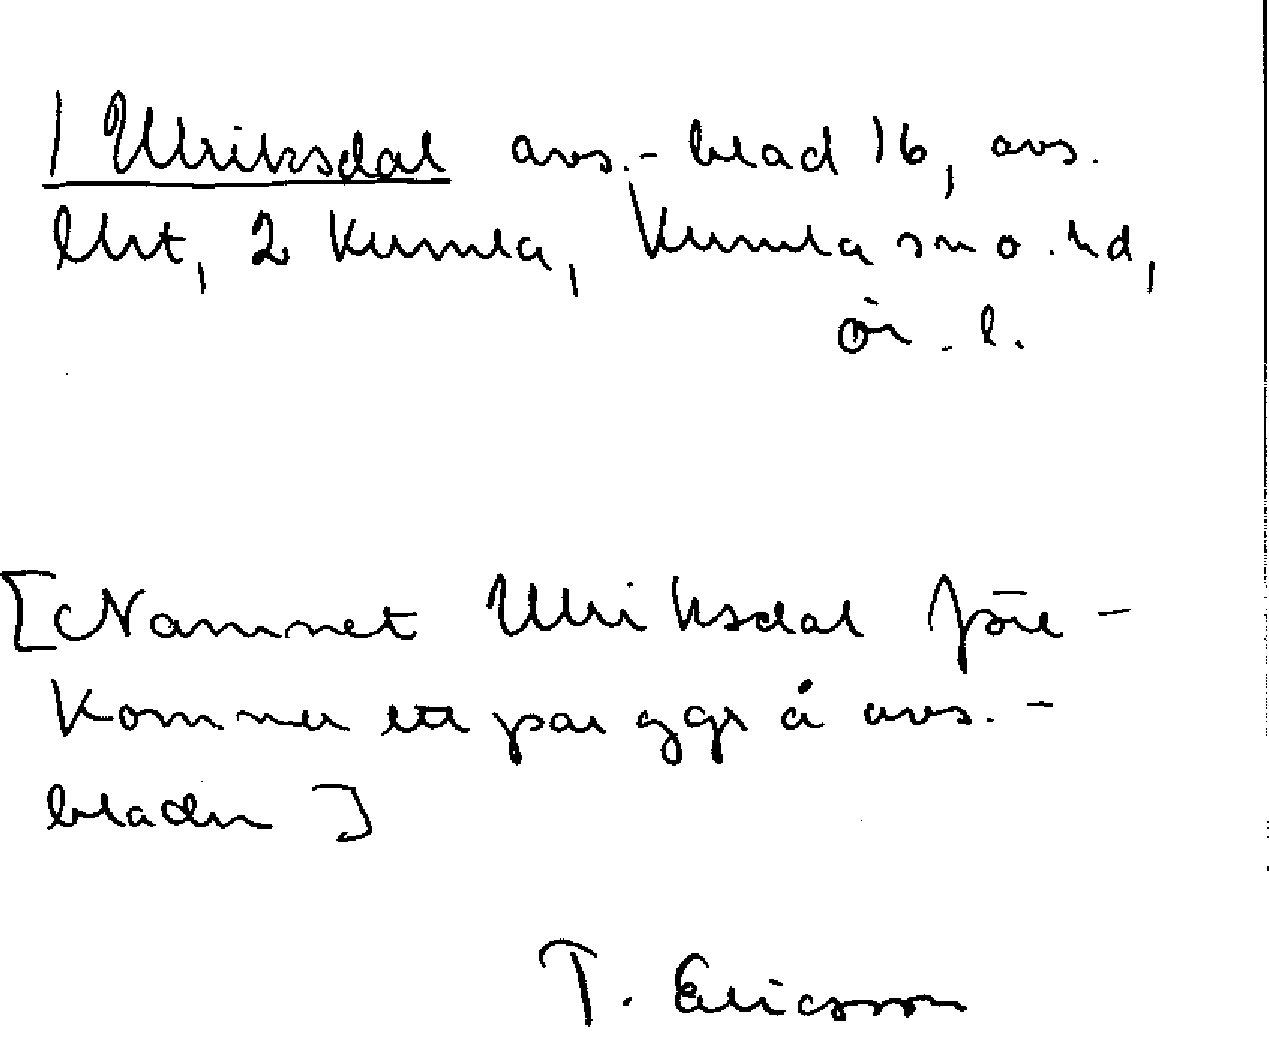 1 Ulriksdal avs.-blad 16, avs.
lht, 2 Kumla, Kumla sn o. hd,
Ör. l.
[Namnet Ulriksdal före-
kommer ett par ggr å avs.-
bladen]
T. Ericsson